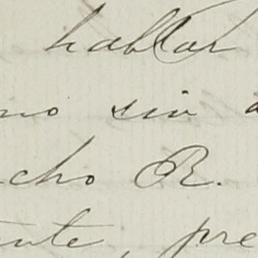 hablar
no sin
cho R.
nte, pre